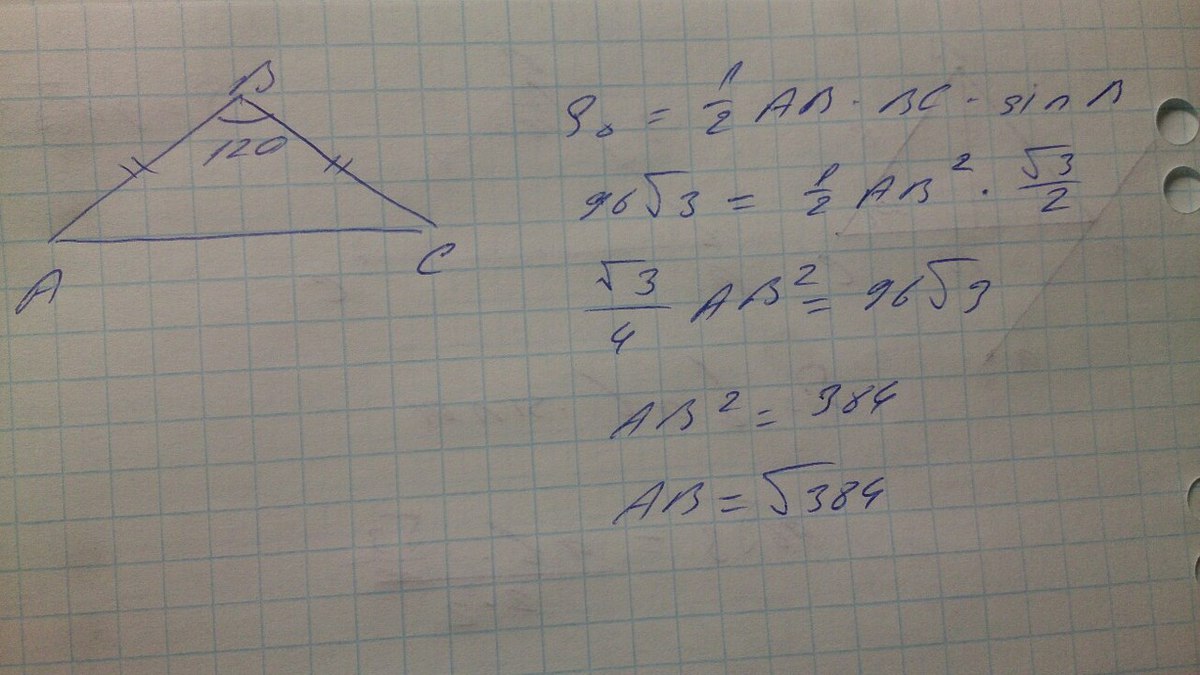 B
120
A
C
S△ = 1/2 AB · BC · sin B
96√3 = 1/2 AB² · √3/2
√3/4 AB² = 96√3
AB² = 384
AB = √384